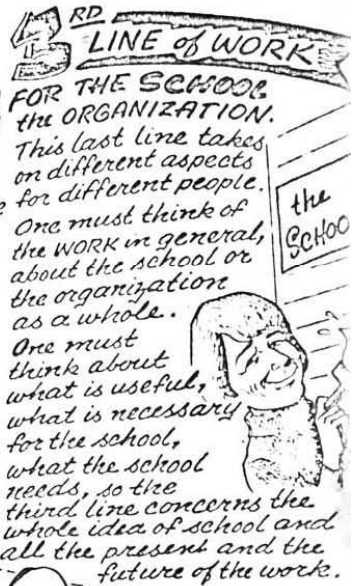 3 RD
LINE of WORK
FOR THE SCHOOL
the ORGANIZATION.
This last line takes
on different aspects
for different people.
One must think of
the WORK in general,
about the school or
the organization
as a whole.
One must
think about
what is useful,
what is necessary
for the school,
what the school
needs, so the
third line concerns the
whole idea of school and
all the present and the
future of the work.
the
SCHOO